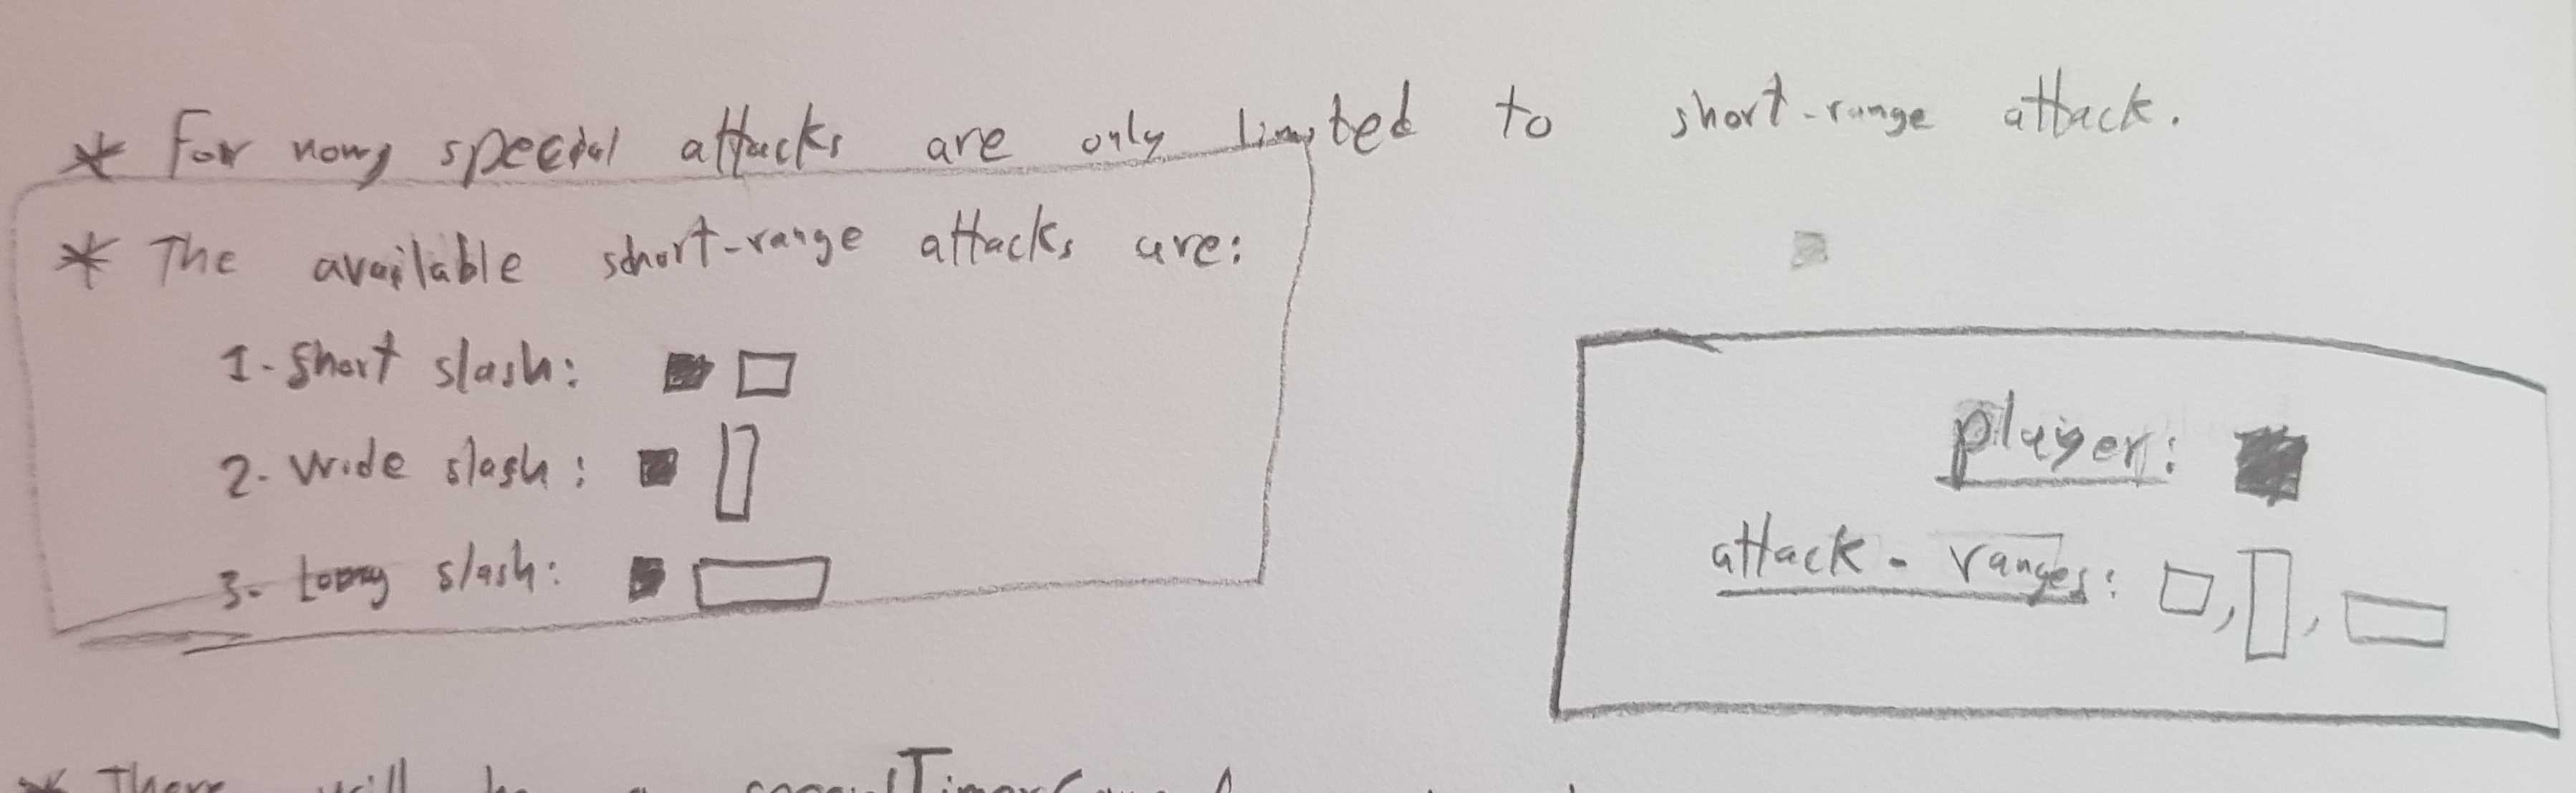 * For now, special attacks are only limited to short-range attack.
* The available short-range attacks are:
1- Short slash:
2- Wide slash:
3- Long slash:
player:
attack - ranges: , ,
* There will be a